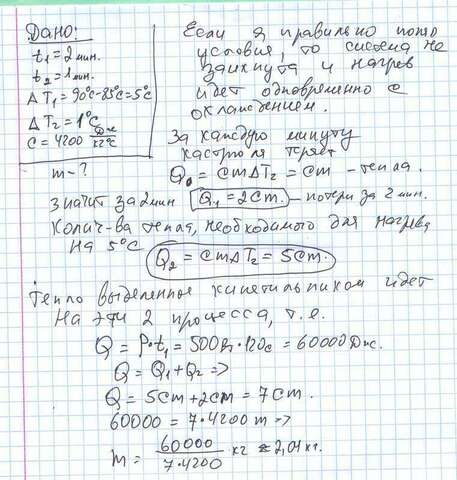 Дано:
t₁ = 2 мин.
t₂ = 1 мин.
ΔT₁ = 90°C - 85°C = 5°C
ΔT₂ = 1°C
C = 4200 Дж/кг°C
m - ?
Если я правильно понял
условия, то система не
замкнута и нагрев
идет одновременно с
охлаждением.
За каждую минуту
кастрюля теряет
Q₀ = cmΔT₂ = cm - тепла.
Значит за 2 мин Q₁ = 2cm. - потери за 2 мин.
Колич-ва тепла, необходимого для нагрева
на 5°C Q₂ = cmΔT₂ = 5cm.
Тепло выделенное кипятильником идет
на эти 2 процесса, т.е.
Q = P·t₁ = 500Вт·120с = 60000 Дж.
Q = Q₁ + Q₂ =>
Q = 5cm + 2cm = 7cm.
60000 = 7·4200 m =>
m = 60000/7·4200 кг ≈ 2,04 кг.